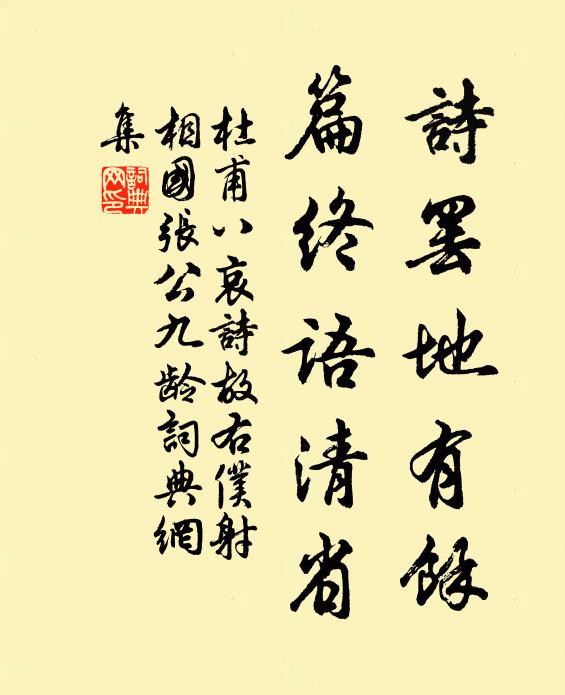 詩罢地有餘
篇终语清省
杜甫八哀詩故右僕射
相國張公九龄詞典網
集
詞典
网印